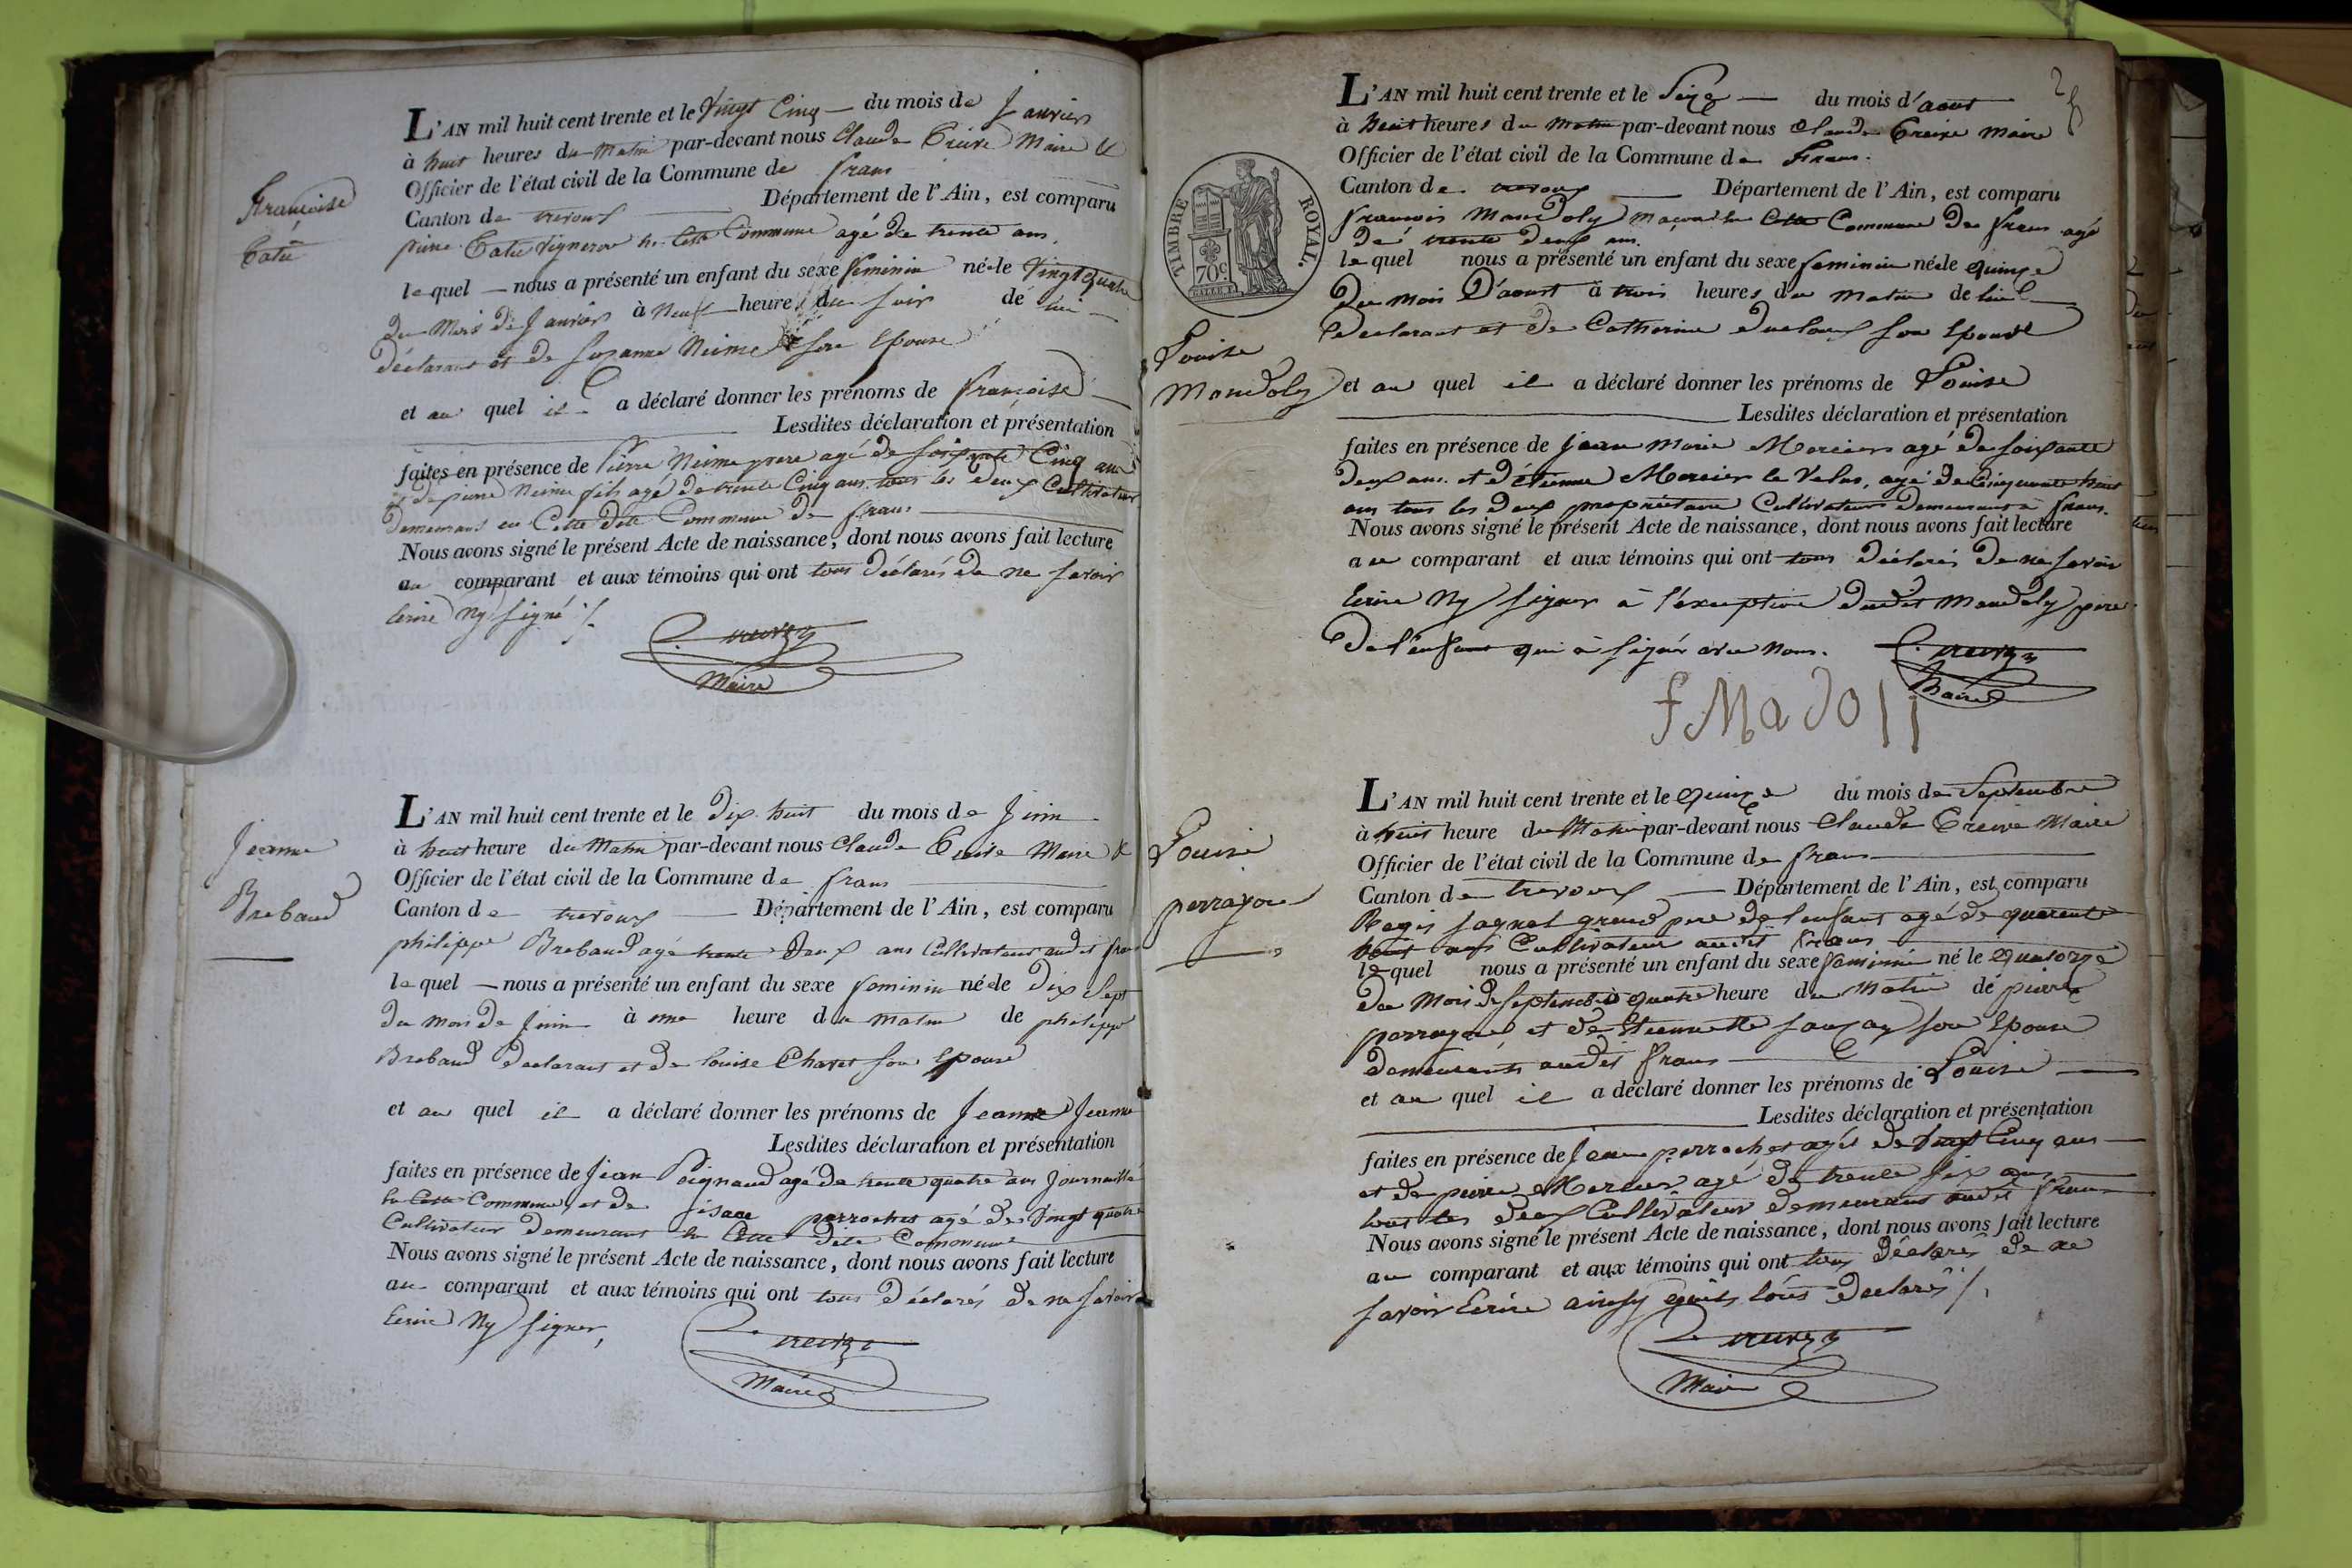 Françoise
Catie
L'AN mil huit cent trente et le Vingt Cinq du mois de Janvier
à huit heures du Matin par-devant nous Claude Maire &
Officier de l'état civil de la Commune de frans
Canton de trevoux Département de l'Ain, est comparu
pierre Catie Vigneron en Cette Commune agé de trente ans
lequel nous a présenté un enfant du sexe feminin née le Vingt quatre
Du Mois de Janvier à Neuf heures du soir de lui
Déclarant et de Suzanne son Epouse
et au quel il a déclaré donner les prénoms de françoise
Lesdites déclaration et présentation
faites en présence de Pierre pere agé de soixante Cinq ans
& de pierre fils agé de trente Cinq ans tous les deux Cultivateur
Demeurant en Cette dite Commune de frans
Nous avons signé le présent Acte de naissance, dont nous avons fait lecture
au comparant et aux témoins qui ont tous déclarés de ne savoir
Ecrire Ny signé
Maire
Jeanne
Brebaud
L'AN mil huit cent trente et le Dix huit du mois de Juin
à huit heure du Matin par-devant nous Claude Maire &
Officier de l'état civil de la Commune de frans
Canton de trevoux Département de l'Ain, est comparu
philippe Brebaud agé trente Deux ans Cultivateur audit frans
lequel nous a présenté un enfant du sexe feminin née le Dix Sept
du mois de Juin à une heure du matin de philippe
Brebaud declarant et de louise Chavet son Epouse
et au quel il a déclaré donner les prénoms de Jeanne Jeanne
Lesdites déclaration et présentation
faites en présence de Jean Poignaud agé de trente quatre ans Journaillé
en Cette Commune et de isaac perrochet agé de Vingt quatre
Cultivateur demeurant en Cette dite Commune
Nous avons signé le présent Acte de naissance, dont nous avons fait lecture
au comparant et aux témoins qui ont tous déclarés de ne savoir
Ecrire Ny signer,
Maire
TIMBRE ROYAL.
70c.
Louise
Mandoly
L'AN mil huit cent trente et le Seize du mois d'aout
à huit heures du Matin par-devant nous Claude Maire
Officier de l'état civil de la Commune de frans.
Canton de trevoux Département de l'Ain, est comparu
françois Mandoly maçon en Cette Commune de frans agé
de trente deux ans.
lequel nous a présenté un enfant du sexe feminin née le quinze
Du mois D'aoust à trois heures du matin de lui
Declarant et de Catherine Duclous son Epouse
et au quel il a déclaré donner les prénoms de Louise
Lesdites déclaration et présentation
faites en présence de Jean Marie Mercier agé de soixante
Deux ans et d'étienne Mercier le Velus, agé de Cinquante huit
ans tous les deux propriétaire Cultivateur Demeurant à frans.
Nous avons signé le présent Acte de naissance, dont nous avons fait lecture
au comparant et aux témoins qui ont tous déclarés de ne savoir
Ecrire Ny signer à l'exception dudit Mandoly pere
De l'enfant qui à signér avec Nous.
Maire
f Madoll
Louise
perrayon
L'AN mil huit cent trente et le quinze du mois de Septembre
à huit heure du Matin par-devant nous Claude Maire
Officier de l'état civil de la Commune de frans
Canton de trevoux Département de l'Ain, est comparu
Regis sagnol grand pere de l'enfant agé de quarente
huit ans Cultivateur audit frans
lequel nous a présenté un enfant du sexe feminin né le quatorze
du Mois de septembre à quatre heure du Matin de pierre
perrayon et de Etiennette son Epouse
demeurants audit frans
et au quel il a déclaré donner les prénoms de Louise
Lesdites déclaration et présentation
faites en présence de Jean perrochet agés de Vingt Cinq ans
et de pierre Mercier agé de trente six ans
tous les deux Cultivateur demeurant audit frans
Nous avons signé le présent Acte de naissance, dont nous avons fait lecture
au comparant et aux témoins qui ont tous déclarés de ne
savoir Ecrire ainsy qu'ils l'ons declarés
Maire